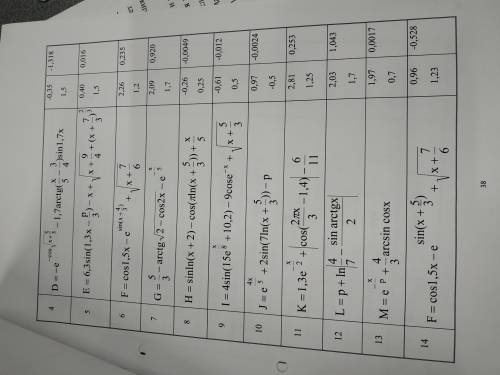 4 D = -e^{-cos√(x+5/3)} - 1,7arctg(x/5 - 3/4)sin1,7x -0,35 1,5 -1,318
5 E = 6,3sin(1,3x - p/3) - x + √(x + 9/4 + (x + 7/3)^2)^3 0,40 1,5 0,016
6 F = cos1,5x - e^{sin(x+5/3)} + √(x + 7/6) 2,26 1,2 0,235
7 G = 5/3 - arctg√2 - cos2x - e^{-x/5} 2,09 1,7 0,920
8 H = sinln(x + 2) - cos(πln(x + 5/3)) + x/5 -0,26 0,25 -0,0049
9 I = 4sin(15e^{x/8} + 10,2) - 9cose^{-x} + √(x + 5/3) -0,61 0,5 -0,012
10 J = e^{4x/5} + 2sin(7ln(x + 5/3)) - p 0,97 -0,5 -0,0024
11 K = 1,3e^{-x/2} + |cos(2πx/3 - 1,4) - 6/11| 2,81 1,25 0,253
12 L = p + ln|4/7 - sin arctgx/2| 2,03 1,7 1,043
13 M = e^{-x/p} + 4/3 arcsin cosx 1,97 0,7 0,0017
14 F = cos1,5x - e^{sin(x+5/3)} + √(x + 7/6) 0,96 1,23 -0,528
38